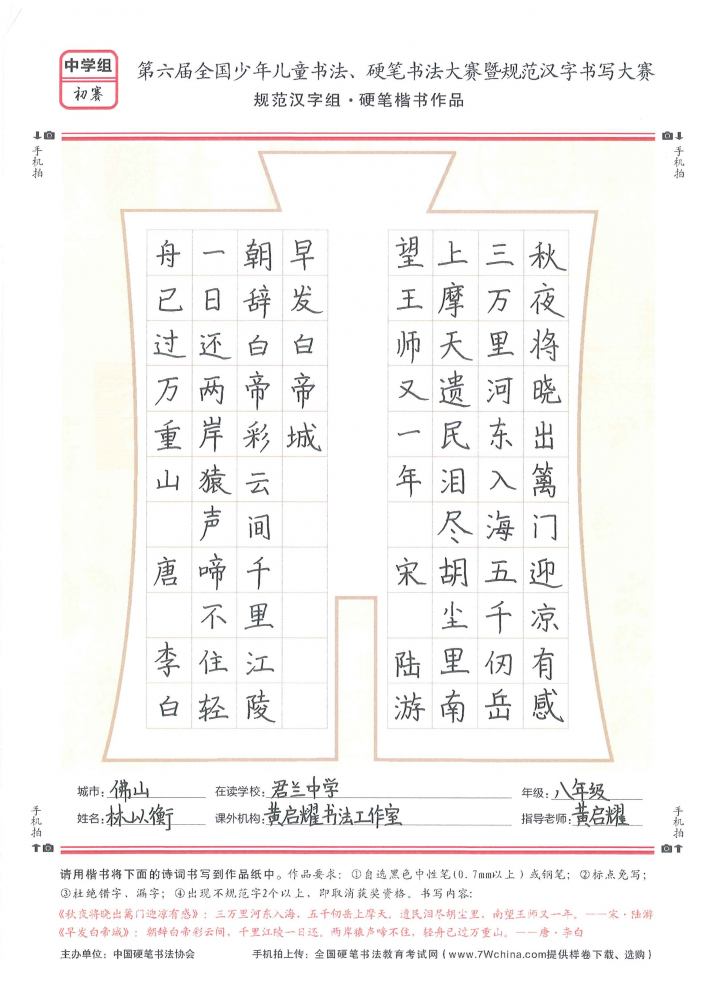 中学组
初赛
第六届全国少年儿童书法、硬笔书法大赛暨规范汉字书写大赛
规范汉字组·硬笔楷书作品
手机拍
手机拍
秋夜将晓出篱门迎凉有感
三万里河东入海五千仞岳
上摩天遗民泪尽胡尘里南
望王师又一年 宋 陆游
早发白帝城
朝辞白帝彩云间千里江陵
一日还两岸猿声啼不住轻
舟已过万重山 唐 李白
城市：佛山 在读学校：君兰中学 年级：八年级
姓名：林以衡 课外机构：黄启耀书法工作室 指导老师：黄启耀
手机拍
手机拍
请用楷书将下面的诗词书写到作品纸中。作品要求：①自选黑色中性笔(0.7mm以上)或钢笔；②标点免写；
③杜绝错字，漏字；④出现不规范字2个以上，即取消获奖资格。书写内容：
《秋夜将晓出篱门迎凉有感》：三万里河东入海，五千仞岳上摩天。遗民泪尽胡尘里，南望王师又一年。——宋·陆游
《早发白帝城》：朝辞白帝彩云间，千里江陵一日还。两岸猿声啼不住，轻舟已过万重山。——唐·李白
主办单位：中国硬笔书法协会 手机拍上传：全国硬笔书法教育考试网（www.7Wchina.com提供样卷下载、选购）